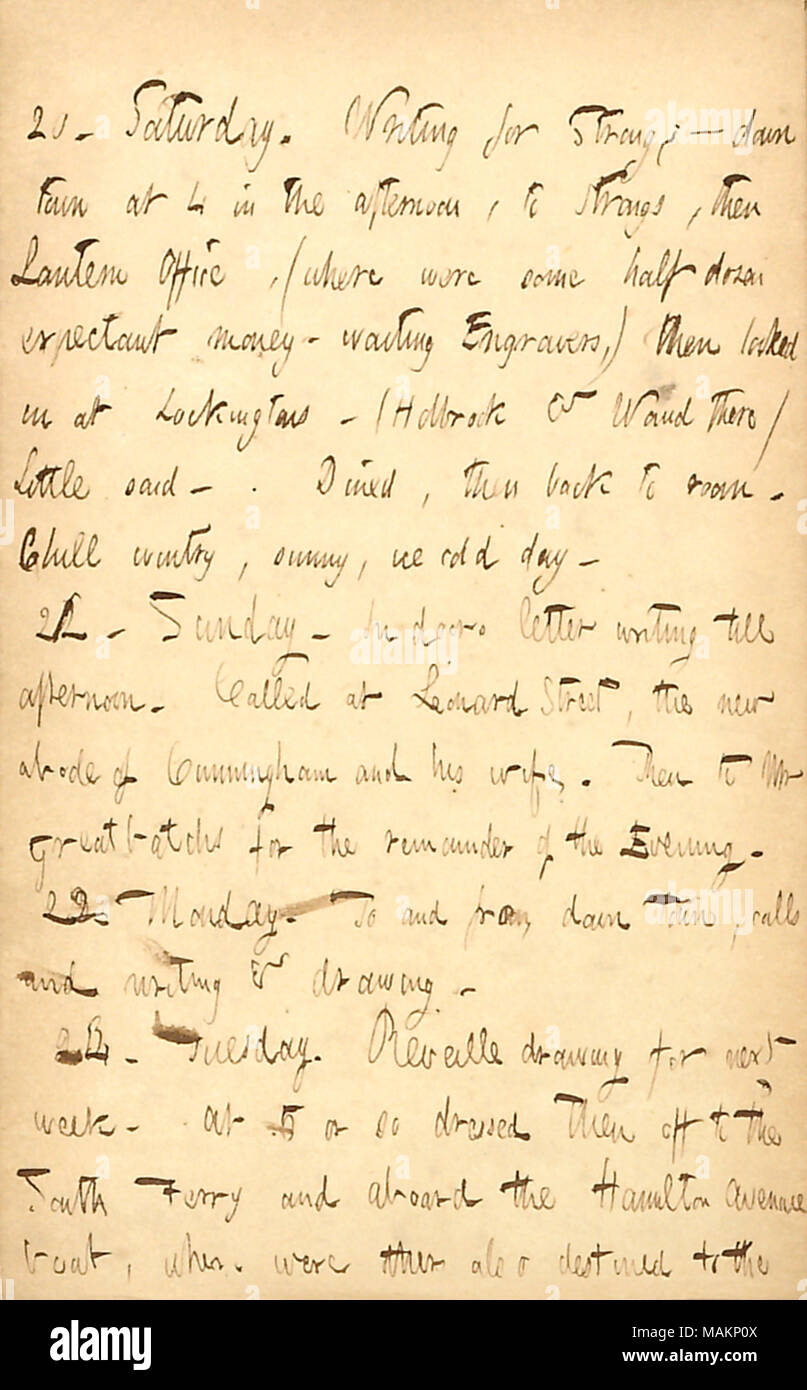 20 - Saturday. Writing for Strongs — down
town at 4 in the afternoon, to Strongs, then
Lantern Office, (where were some half dozen
expectant money-waiting Engravers,) then looked
in at Lockingtons - (Holbrook & Waud there)
Little said - . Dined, then back to room.
Chill wintry, sunny, ice cold day -
Sunday - In doors letter writing till
afternoon. Called at Leonard Street, the new
abode of Cunningham and his wife. Then to Mr
Greatbatchs for the remainder of the Evening.
22. Monday. To and from down town, calls
and writing & drawing. -
Tuesday. Reveille drawing for next
week - at 5 or so dressed then off to the
South Ferry and aboard the Hamilton Avenue
boat, where were other also destined to the
alamy
Image ID: MAKP0X
www.alamy.com